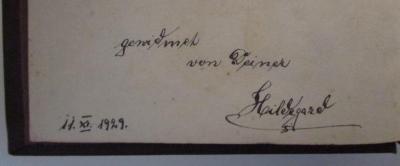 gewidmet
von Deiner
Hildegard
11. XI. 1929.